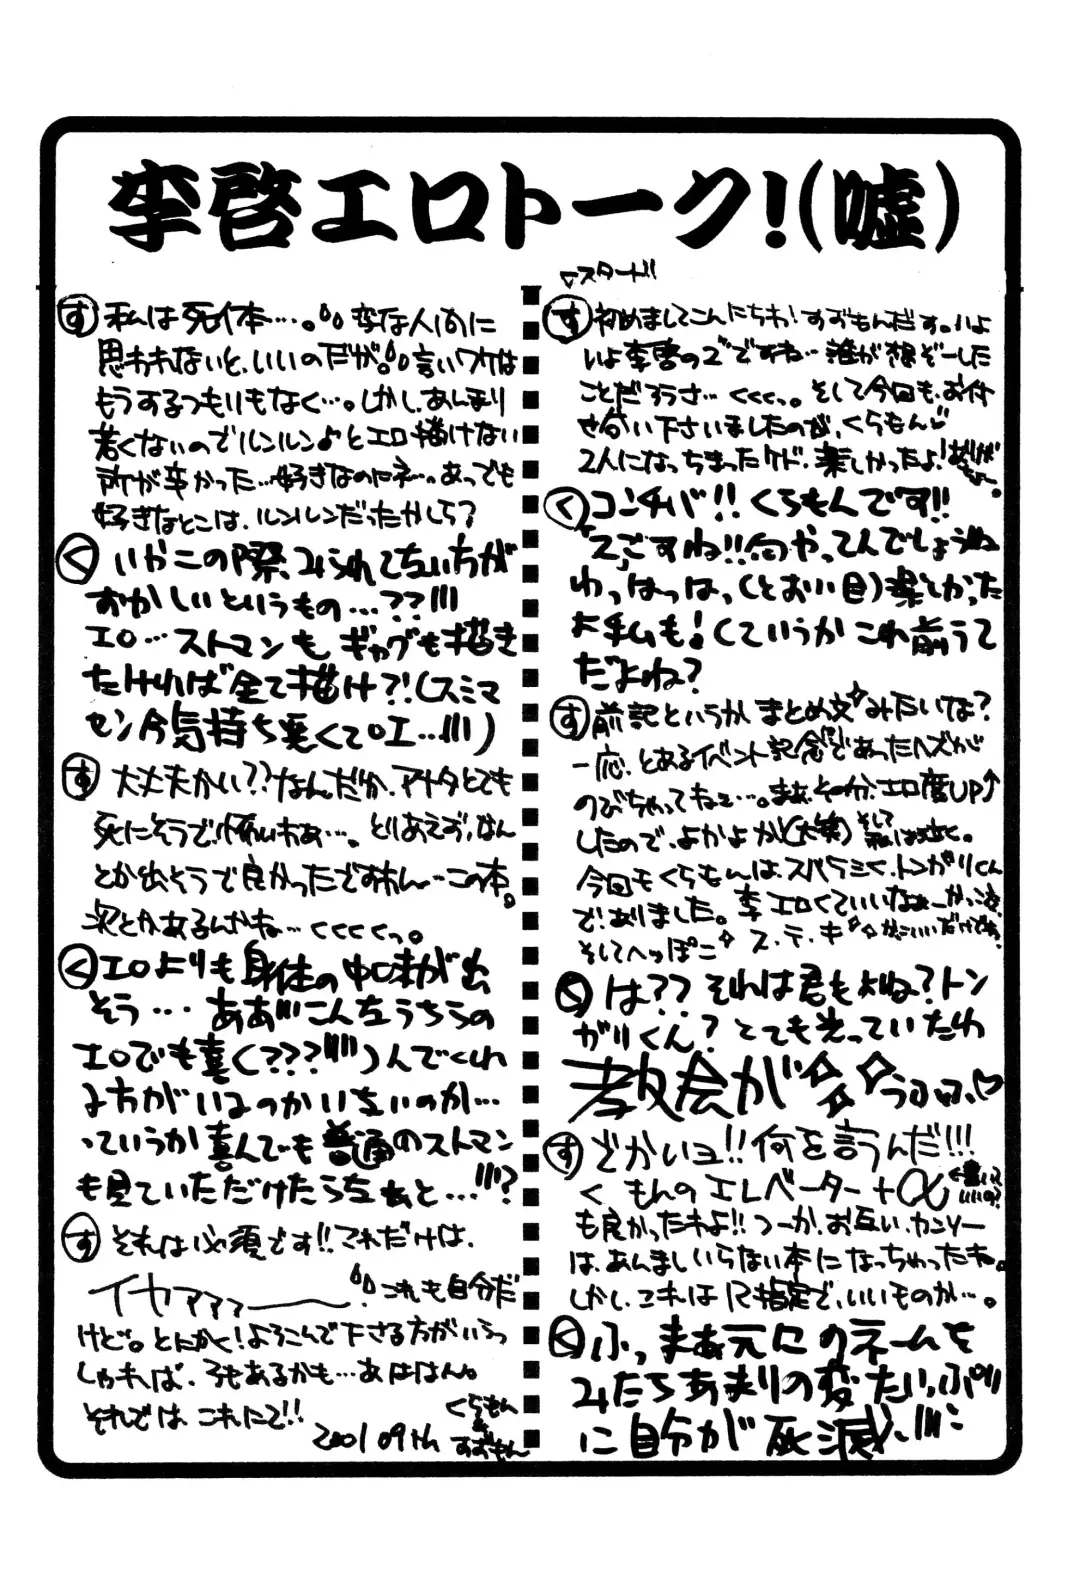 李啓エロトーク!(嘘)
▽スタート!!
す 初めましてこんにちわ!すずもんだす。いよ
いよ李啓の2ですね…誰が想ぞーした
ことだろうさ…くくくっ。そして今回も、お付
せ合い下さいましたのが、くらもん♡
2人になっちまったケド、楽しかったよ!
く コンチバ!!くらもんです!!
「2」ごすね!!何やってんでしょうね
わっはっはっ、(とおい目)楽しかった
よ私も!(ていうかこれ前うて
だよね?
す 前記というかまとめ文みたいな?
一応、とあるイベント記念であったハズが
のびちゃってねぇ…。まあ、その分、エロ度UP↑
したので、よかよか(大笑)そして私は泣く。
今回もくらもんは、スバラシく、トンガリくん
で、ありました。李エロくていいなぁーかっこよ
そしてへっぽこ ス・テ・キ かっこいいだけでなく
く は??それは君もよね?トン
がりくん?とても光っていたわ
教会が うふふ♡
す どかいョ!!何を言うんだ!!!
く もんのエレベーター+α
も良かったわよ!!つーか、お互い、カンソー
は、あんましいらない本になっちゃったね。
しかし、これはR指定で、いいものか…。
く ふっまぁ元にのネームを
みたらあまりの変たいっぷり
に自分が死滅、!!!
す 私は死体…。変な人間に
思われないと、いいのだが。言いワケは
もうするつもりもなく…。しかし、あんまり
若くないのでルンルン♪とエロ描けない
所が辛かった…好きなのにネ…。あっでも
好きなとこは、ルンルンだったかしら?
く いやこの際、みられてない方が
おかしいというもの…??!!!
エロ…ストマンも、ギャグも描き
たければ全て描け?!(スミマ
セン今気持ち悪くてロエ…!!!)
す 大丈夫かい??なんだか、アナタとても
死にそうで、怖いわぁ…。とりあえず、なん
とか出そうで良かったですわん…この本。
次とかあるんかね…くくくくっ。
く エロよりも身体の中味が出
そう…ああ!!こんなうちらの
エロでも喜く(???!!!)んでくれ
る方がいるのかいないのか…
っていうか喜んでも普通のストマン
も見ていただけたらなぁと…!!!?
す それは必須です!!これだけは、
イヤァァァー これも自分だ
けど。とにかく!よろこんで下さる方がいらっ
しゃれば、3もあるかも…あははん。
それでは、これにて!!
2001 09th くらもん
&
すずもん